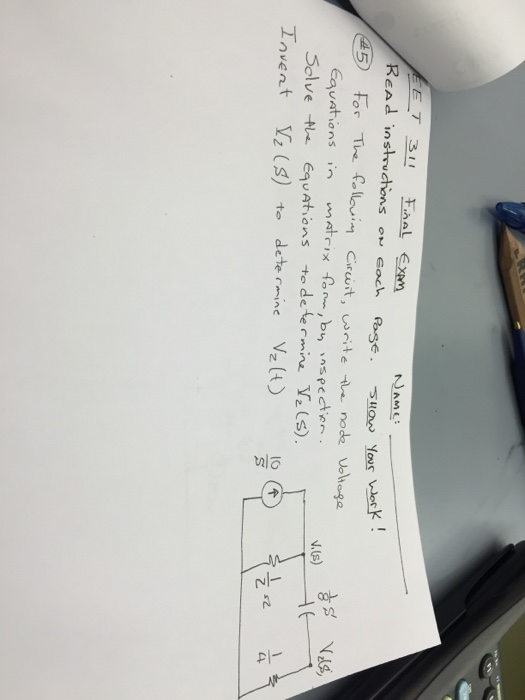 EET 311 Final Exam NAME:
Read instructions on Each Page. Show Your Work!
#5 For The following Circuit, write the node Voltage
Equations in matrix form, by inspection.
Solve the Equations to determine V2(s).
Invert V2(s) to determine V2(t)
V1(s) 1/8 S V2(s)
10/S 1/2 Ω 1/4